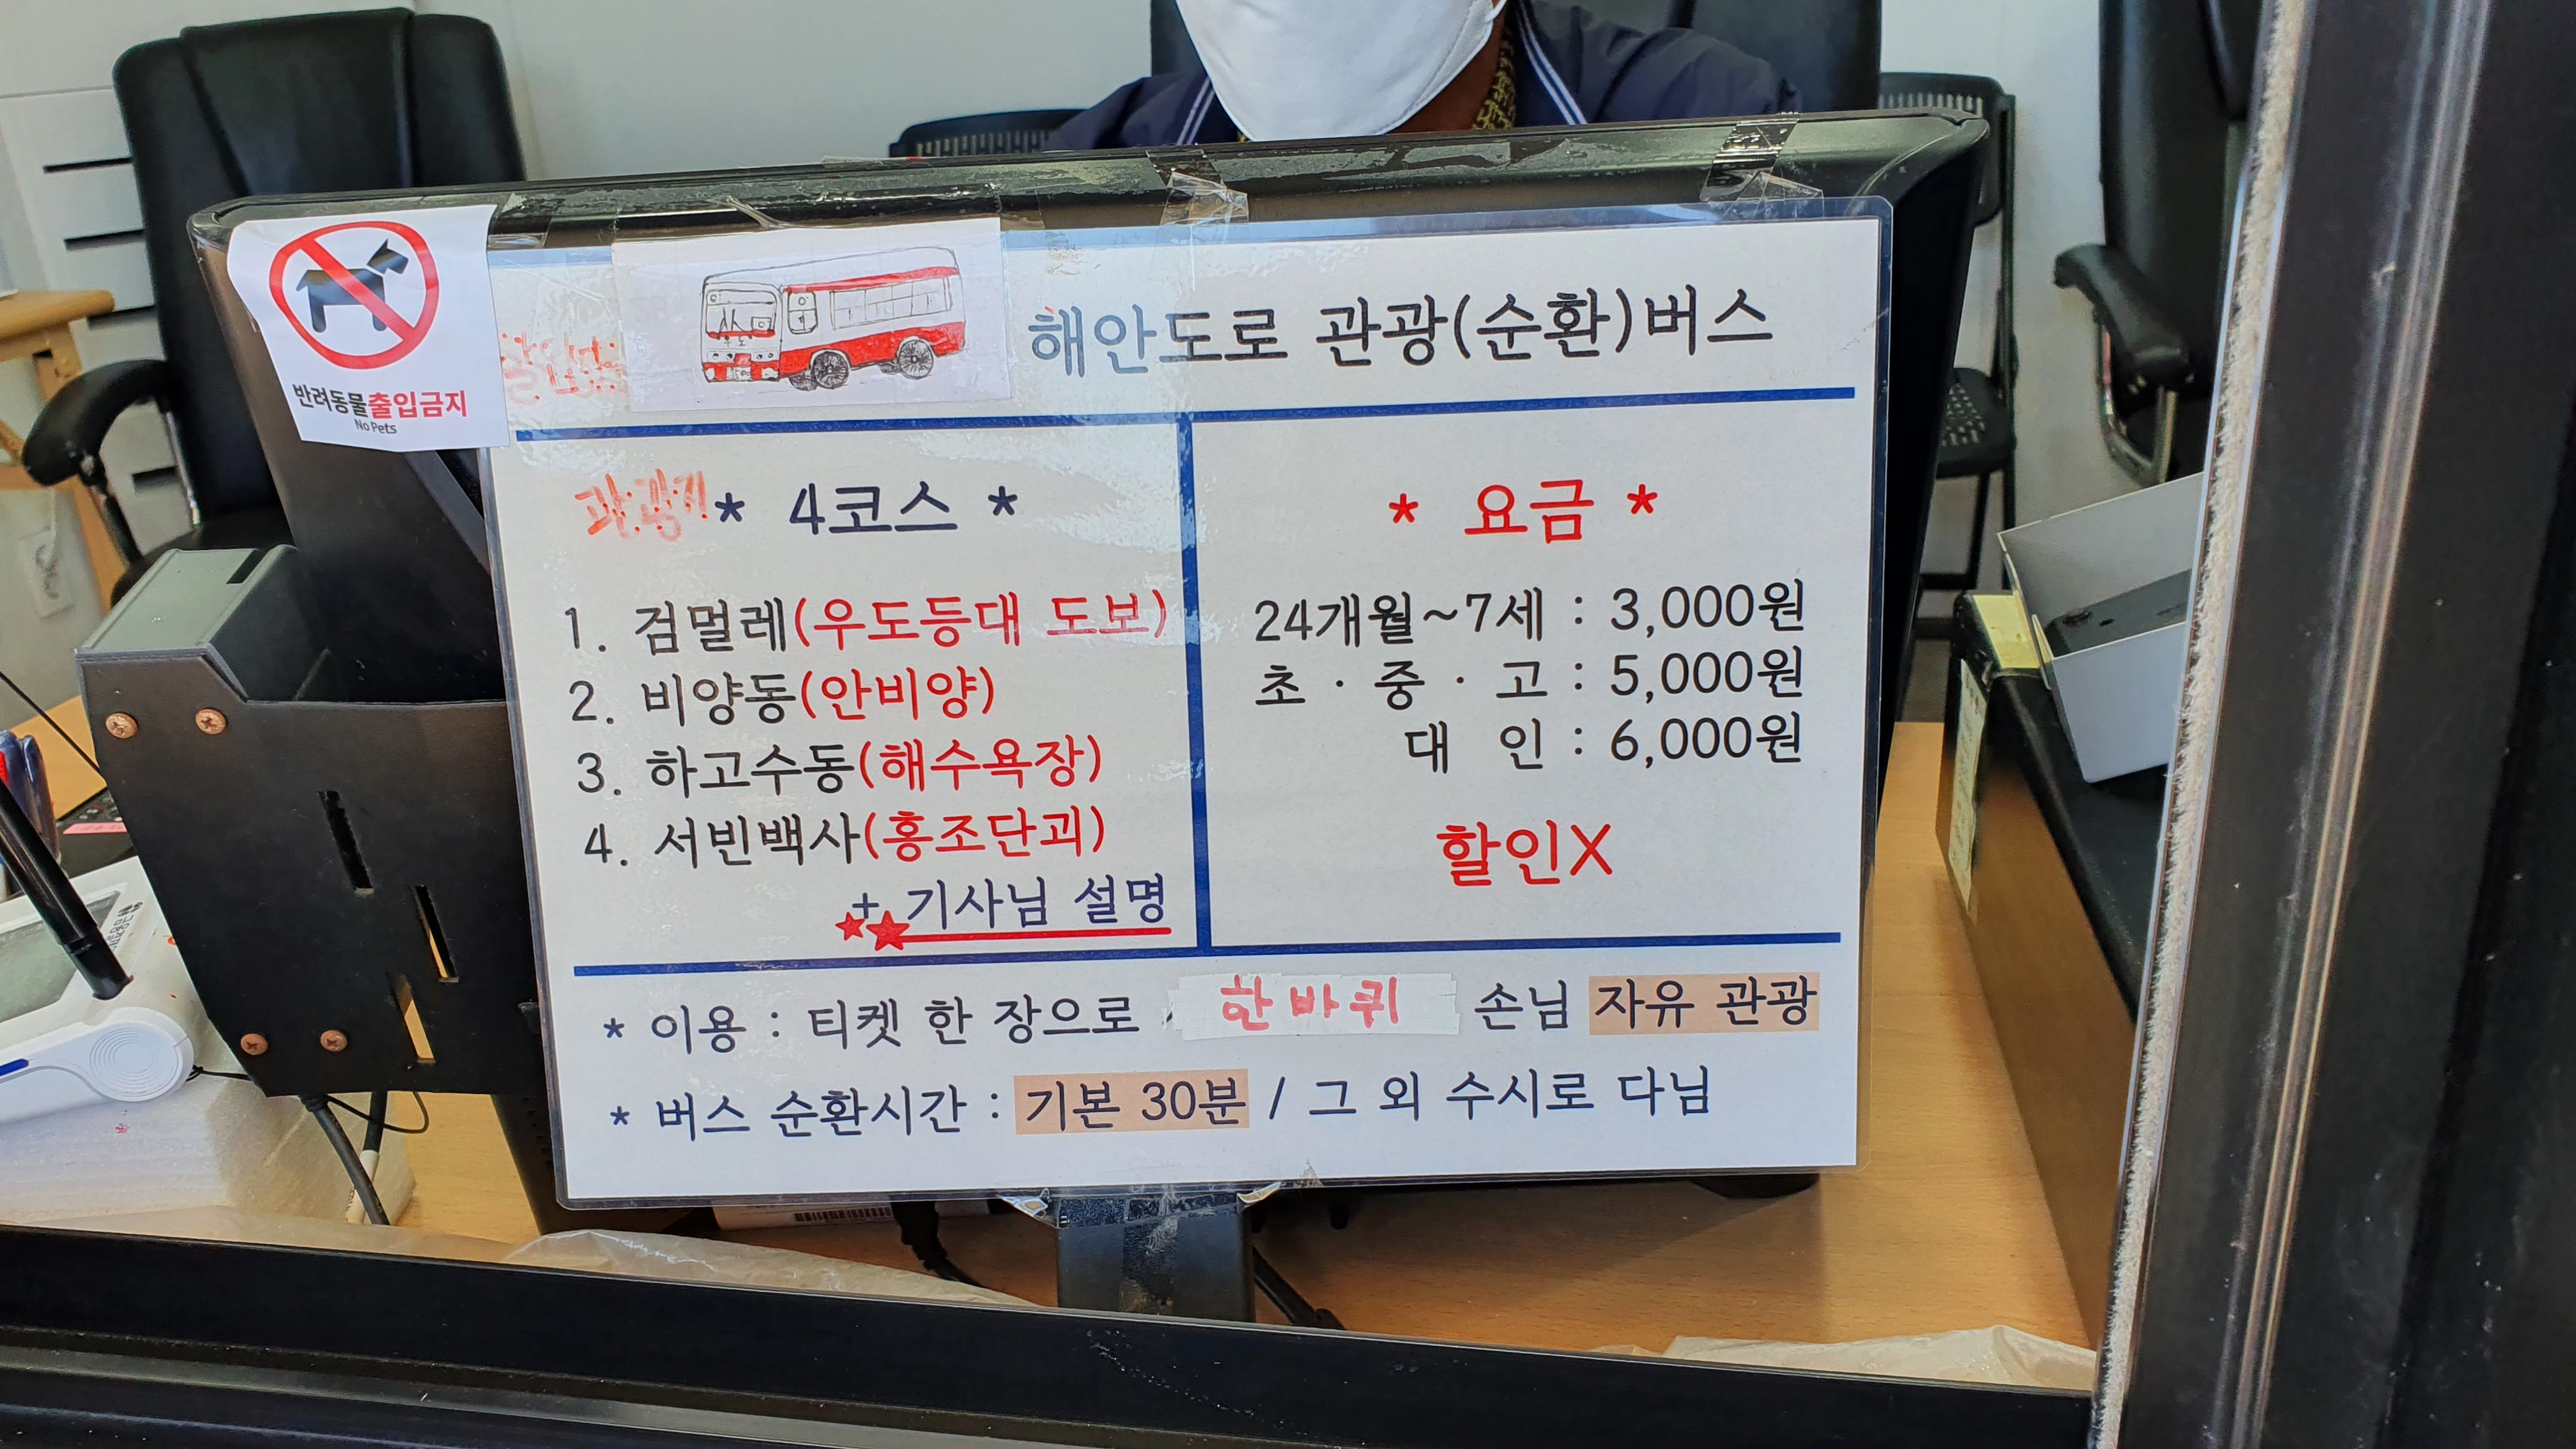 반려동물출입금지
No Pets
해안도로 관광(순환)버스
관광지 * 4코스 *
1. 검멀레(우도등대 도보)
2. 비양동(안비양)
3. 하고수동(해수욕장)
4. 서빈백사(홍조단괴)
+ 기사님 설명
* 요금 *
24개월~7세 : 3,000원
초 · 중 · 고 : 5,000원
대 인 : 6,000원
할인X
* 이용 : 티켓 한 장으로 한바퀴 손님 자유 관광
* 버스 순환시간 : 기본 30분 / 그 외 수시로 다님